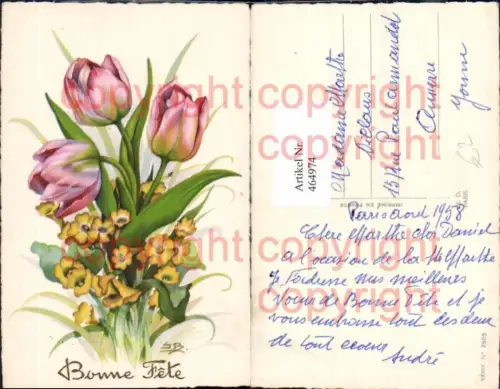 Bonne Fête
copyright
copyright
copyright
copyright
Artikel Nr.
464974
Madame Marthe
13 Rue Paul
Auxerre
Yonne
PARIS
Paris Aout 1958
Chère Marthe Daniel
a l'ocasion de la Ste Marthe
Je t'adresse mes meilleurs
Voeux de Bonne Fête et je
vous embrasse tout les deux
de tout coeur
André